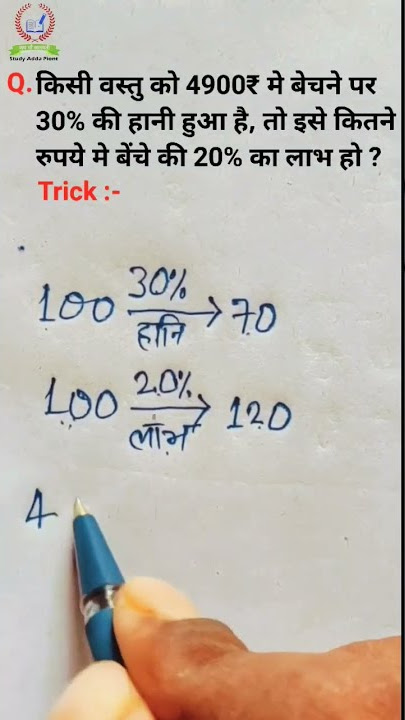 Study Adda Point
Q. किसी वस्तु को 4900₹ मे बेचने पर
30% की हानी हुआ है, तो इसे कितने
रुपये मे बेंचे की 20% का लाभ हो ?
Trick :-
100 30% हानि → 70
100 20% लाभ → 120
4